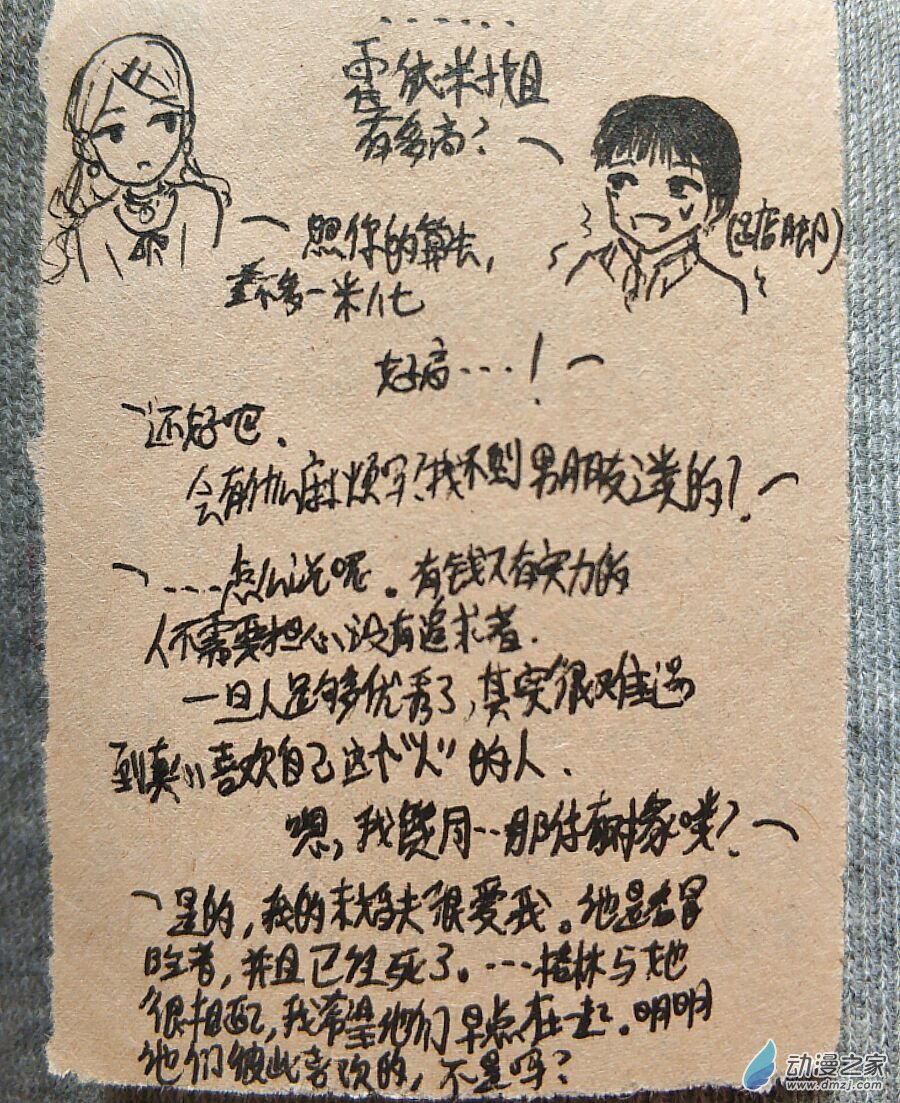 .......
霍伙米小姐
有多高？
照你的算法，
差不多一米八七
(迅店脚)
好高....！
还好吧．
会有什么麻烦吗？找不到男朋友之类的？
....怎么说呢。有钱又有实力的
人不需要担心没有追求者．
一旦人足够多优秀了，其实很难遇
到真心喜欢自己这个“人”的人．
嗯，我懂．那你有对象喽？
是的，我的未婚夫很爱我。他是名冒
险者，并且已经死了。...格林与她
很相配，我希望他们早点在一起。明明
他们彼此喜欢的，不是吗？
动漫之家
www.dmzj.com